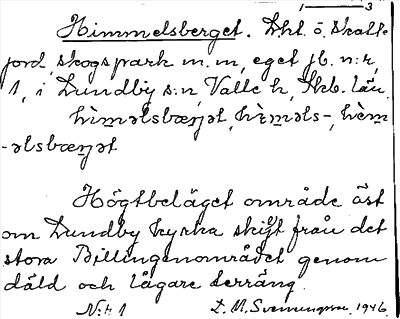 1 — 3
Himmelsberget. Lht. o. skatte-
jord, skogspark m. m, eget jb. n:r,
1, i Lundby s:n, Valle h, Skb. län.
hìməlsbærjət, hìməls-, hèm
-əlsbærjət
Högtbeläget område öst
om Lundby kyrka skilt från det
stora Billingenområdet genom
däld och lägare terräng.
N:r 1
1946.